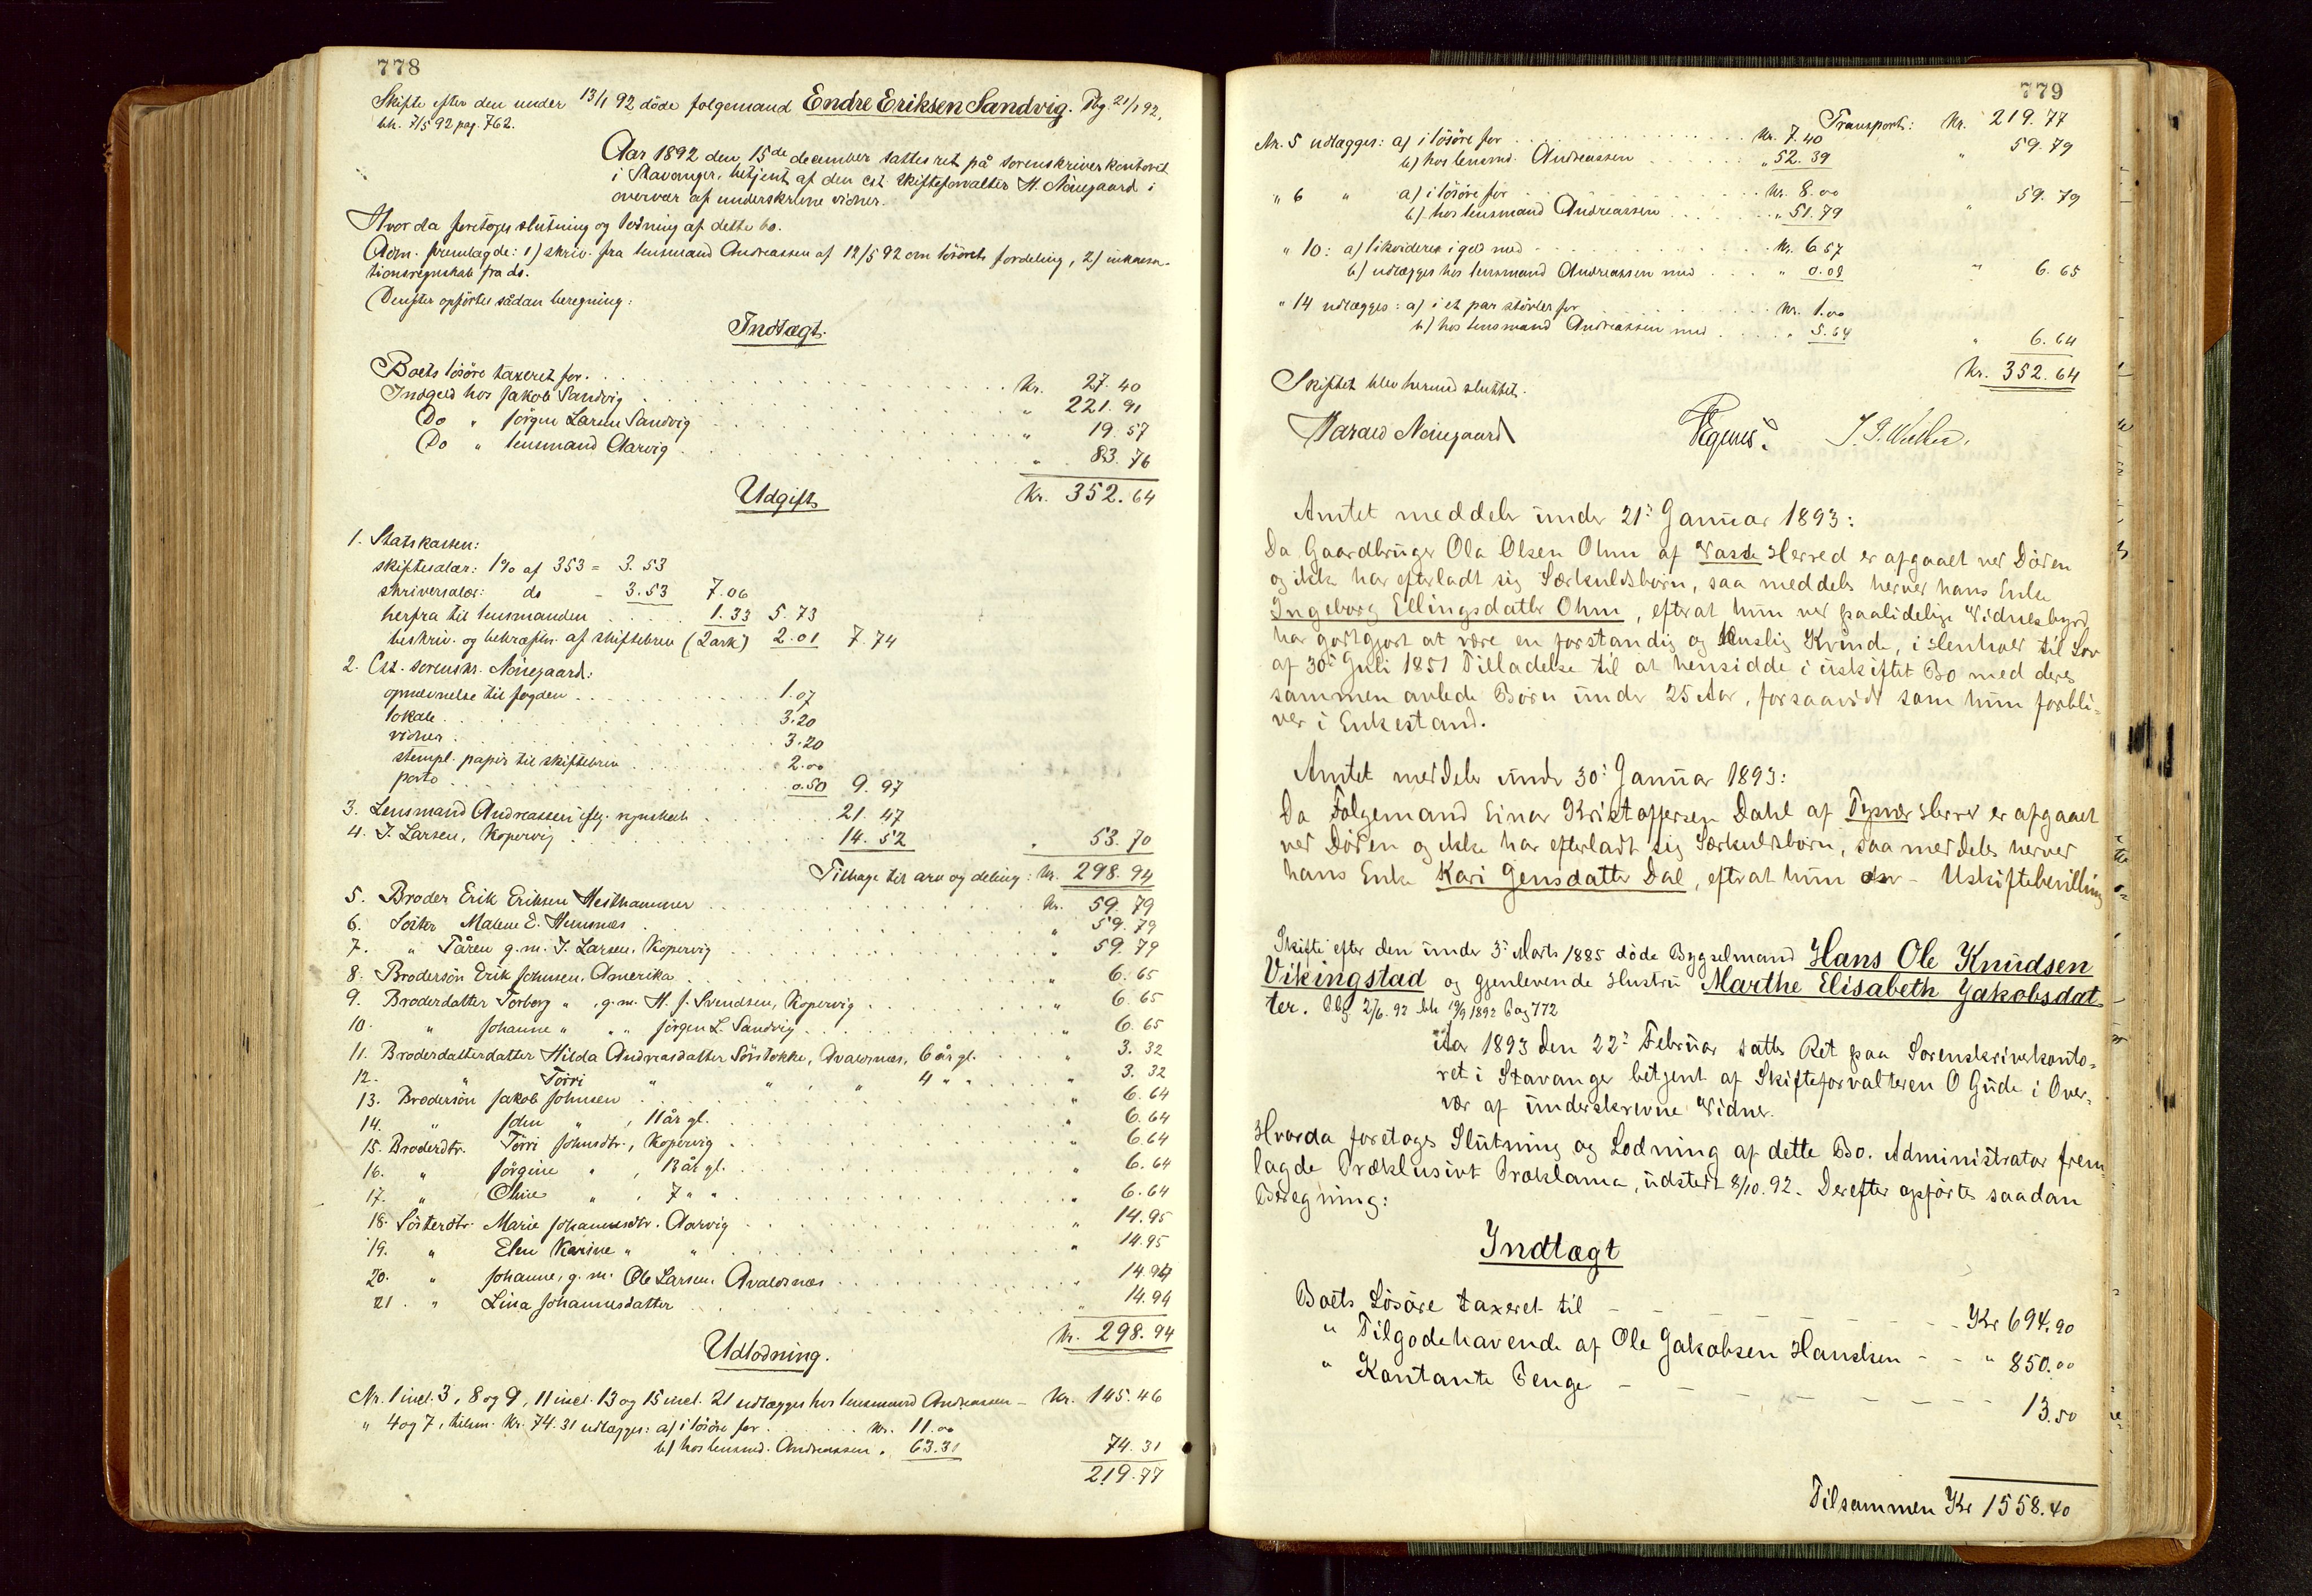 778
Skifte efter den under 13/1 92 døde folgemand Endre Eriksen Sandvig. Obg. 21/1 92,
bh. 7/5 92 pag. 762.
Aar 1892 den 15de december sattes ret på sorenskriverkontoret
i Stavanger, betjent af den cst. skifteforvalter H. Nörregaard i
overvær af underskrevne vidner.
Hvorda foretoges slutning og lodning af dette bo.
Adm. fremlagde: 1) skriv. fra lensmand Andreassen af 12/5 92 om løsørets fordeling, 2) inkassa-
tionsregnskab fra do.
Derefter opførtes sådan beregning:
Indtægt.
Boets løsøre taxeret for . . . Kr. 27.40
Indgeld hos Jakob Sandvig . . . " 221.91
Do " Jørgen Larsen Sandvig . . . " 19.57
Do " lensmand Aarvig . . . " 83.76
Kr. 352.64
Udgift
1. Statskassen:
skiftesalær: 1% af 353 = 3.53
skriversalær: do - 3.53 7.06
herfra til lensmanden . . . 1.33 5.73
beskriv. og bekræftn. af skiftebrev (2 ark) 2.01 7.74
2. Cst. sorenskr. Nörregaard:
opnævnelse til fogden . . . 1.07
lokale . . . 3.20
vidner . . . 3.20
stempl. papir til skiftebrev . . . 2.00
porto . . . 0.50 9.97
3. Lensmand Andreassen iflg. regnskab . . . 21.47
4. J. Larsen, Kopervig . . . 14.52 " 53.70
Tilbage til arv og deling: Kr. 298.94
5. Broder Erik Eriksen Meithammer . . . Kr. 59.79
6. Søster Malene E. Hemnæs . . . " 59.79
7. " Tåren g.m. J. Larsen, Kopervig . . . " 59.79
8. Brodersøn Erik Johnsen, Amerika . . . " 6.65
9. Broderdatter Torborg " , g.m. H. J. Svendsen, Kopervig . . . " 6.65
10. " Johanne " " " Jørgen L. Sandvig . . . " 6.65
11. Broderdatterdatter Hilda Andreasdatter Sørstokke, Avaldsnæs, 6 år gl. . . . " 3.32
12. " Torri " " , " 4 " " . . . " 3.32
13. Brodersøn Jakob Johnsen . . . " 6.64
14. " John " , 11 år gl. . . . " 6.64
15. Broderdtr. Torri Johnsdtr., Kopervig . . . " 6.64
16. " Jørgine " , 13 år gl. . . . " 6.64
17. " Oline " , 7 " " . . . " 6.64
18. Søsterdtr. Marie Johannesdtr. Aarvig . . . " 14.95
19. " Elen Karine " " . . . " 14.95
20. " Johanne, g.m. Ole Larsen, Avaldsnæs . . . " 14.94
21. " Lina Johannesdatter . . . " 14.94
Kr. 298.94
Udlodning.
Nr. 1 incl. 3, 8 og 9, 11 incl. 13 og 15 incl. 21 udlægges hos lensmand Andreassen - Kr. 145.46
" 4 og 7, tilsm. Kr. 74.31 udlægges: a) i løsøre for . . . Kr. 11.00
b) hos lensmd. Andreassen " 63.31 74.31
219.77
779
Transport: Kr. 219.77
Nr. 5 udlægges: a) i løsøre for . . . Kr. 7.40
b) hos lensmd. Andreassen . . . " 52.39 " 59.79
" 6 " a) i løsøre for . . . Kr. 8.00
b) hos lensmand Andreassen . . . " 51.79 " 59.79
" 10: a) likvideres i geld med . . . Kr. 6.57
b) udlægges hos lensmand Andreassen med . . . " 0.08 " 6.65
" 14 udlægges: a) i et par støvler for . . . Kr. 1.00
b) hos lensmand Andreassen med . . . " 5.64 " 6.64
Kr. 352.64
Skiftet blev hermed sluttet.
Harald Nörregaard
Amtet meddeler under 21' Januar 1893:
Da Gaardbruger Ola Olsen Ohm af Vasse Herred er afgaaet ved Døden
og ikke har efterladt sig Særkuldsbørn, saa meddeles herved hans Enke
Ingeborg Ellingsdatter Ohm, efterat hun ved paalidelige Vidnesbyrd
har godtgjort at være en forstandig og huslig Kvinde, i Henhold til Lov
af 30' Juli 1851 Tilladelse til at hensidde i uskiftet Bo med deres
sammen avlede Børn under 25 Aar, forsaavidt som hun forbli-
ver i Enkestand.
Amtet meddeler under 30' Januar 1893:
Da Følgemand Einar Kristoffersen Dahl af Tysvær Herred er afgaaet
ved Døden og ikke har efterladt sig Særkuldsbørn, saa meddeles herved
hans Enke Kari Jensdatter Dal, efterat hun osv - Uskiftebevilling
Skifte efter den under 3' Marts 1885 døde Bygselmand Hans Ole Knudsen
Vikingstad og gjenlevende Hustru Marthe Elisabeth Jakobsdat-
ter. Obg 2/6. 92 bh 19/9 1892 Pag 772
Aar 1893 den 22' Februar sattes Ret paa Sorenskriverkonto-
ret i Stavanger betjent af Skifteforvalteren O Gude i Over-
vær af underskrevne Vidner.
Hvorda foretoges Slutning og Lodning af dette Bo. Administrator frem-
lagde Præklusivt Proklama, udstedt 8/10. 92. Derefter opførtes saadan
Beregning:
Indtægt
Boets Løsøre taxeret til - - - Kr 694.90
" Tilgodehavende af Ole Jakobsen Handsken - - " 850.00
" Kontante Penge - - - 13.50
Tilsammen Kr 1558.40